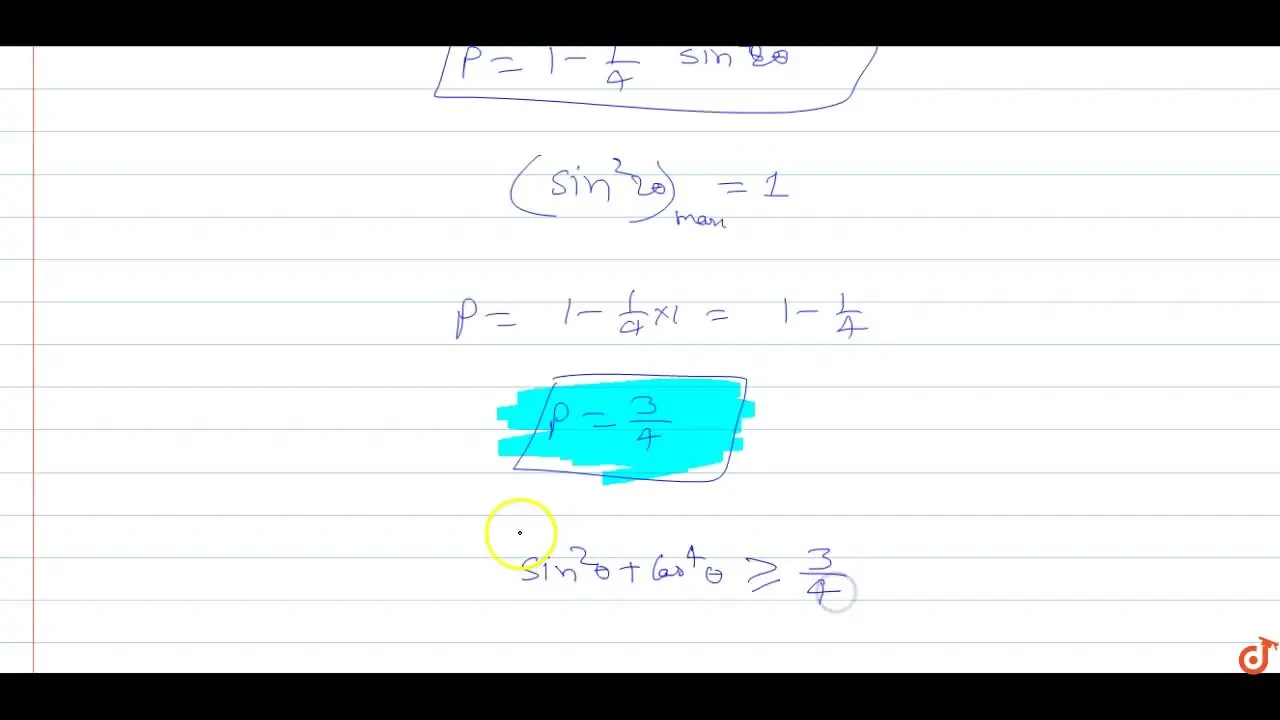 P = 1 - 1/4 sin²2θ
(sin²2θ)max = 1
P = 1 - 1/4 × 1 = 1 - 1/4
P = 3/4
sin²θ + cos⁴θ ≥ 3/4